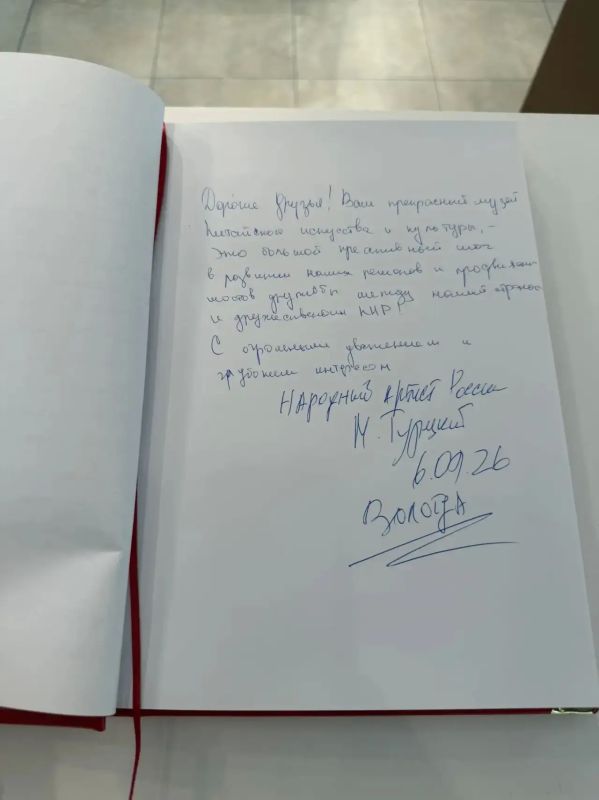 Дорогие друзья! Ваш прекрасный музей
Китайского искусства и культуры, -
это большой креативный шаг
в развитии наших регионов и
мостов дружбы между нашей
и дружественной КНР!
С огромным уважением и
глубоким интересом
Народный Артист России
М. Турецкий
6.09.26
Вологда